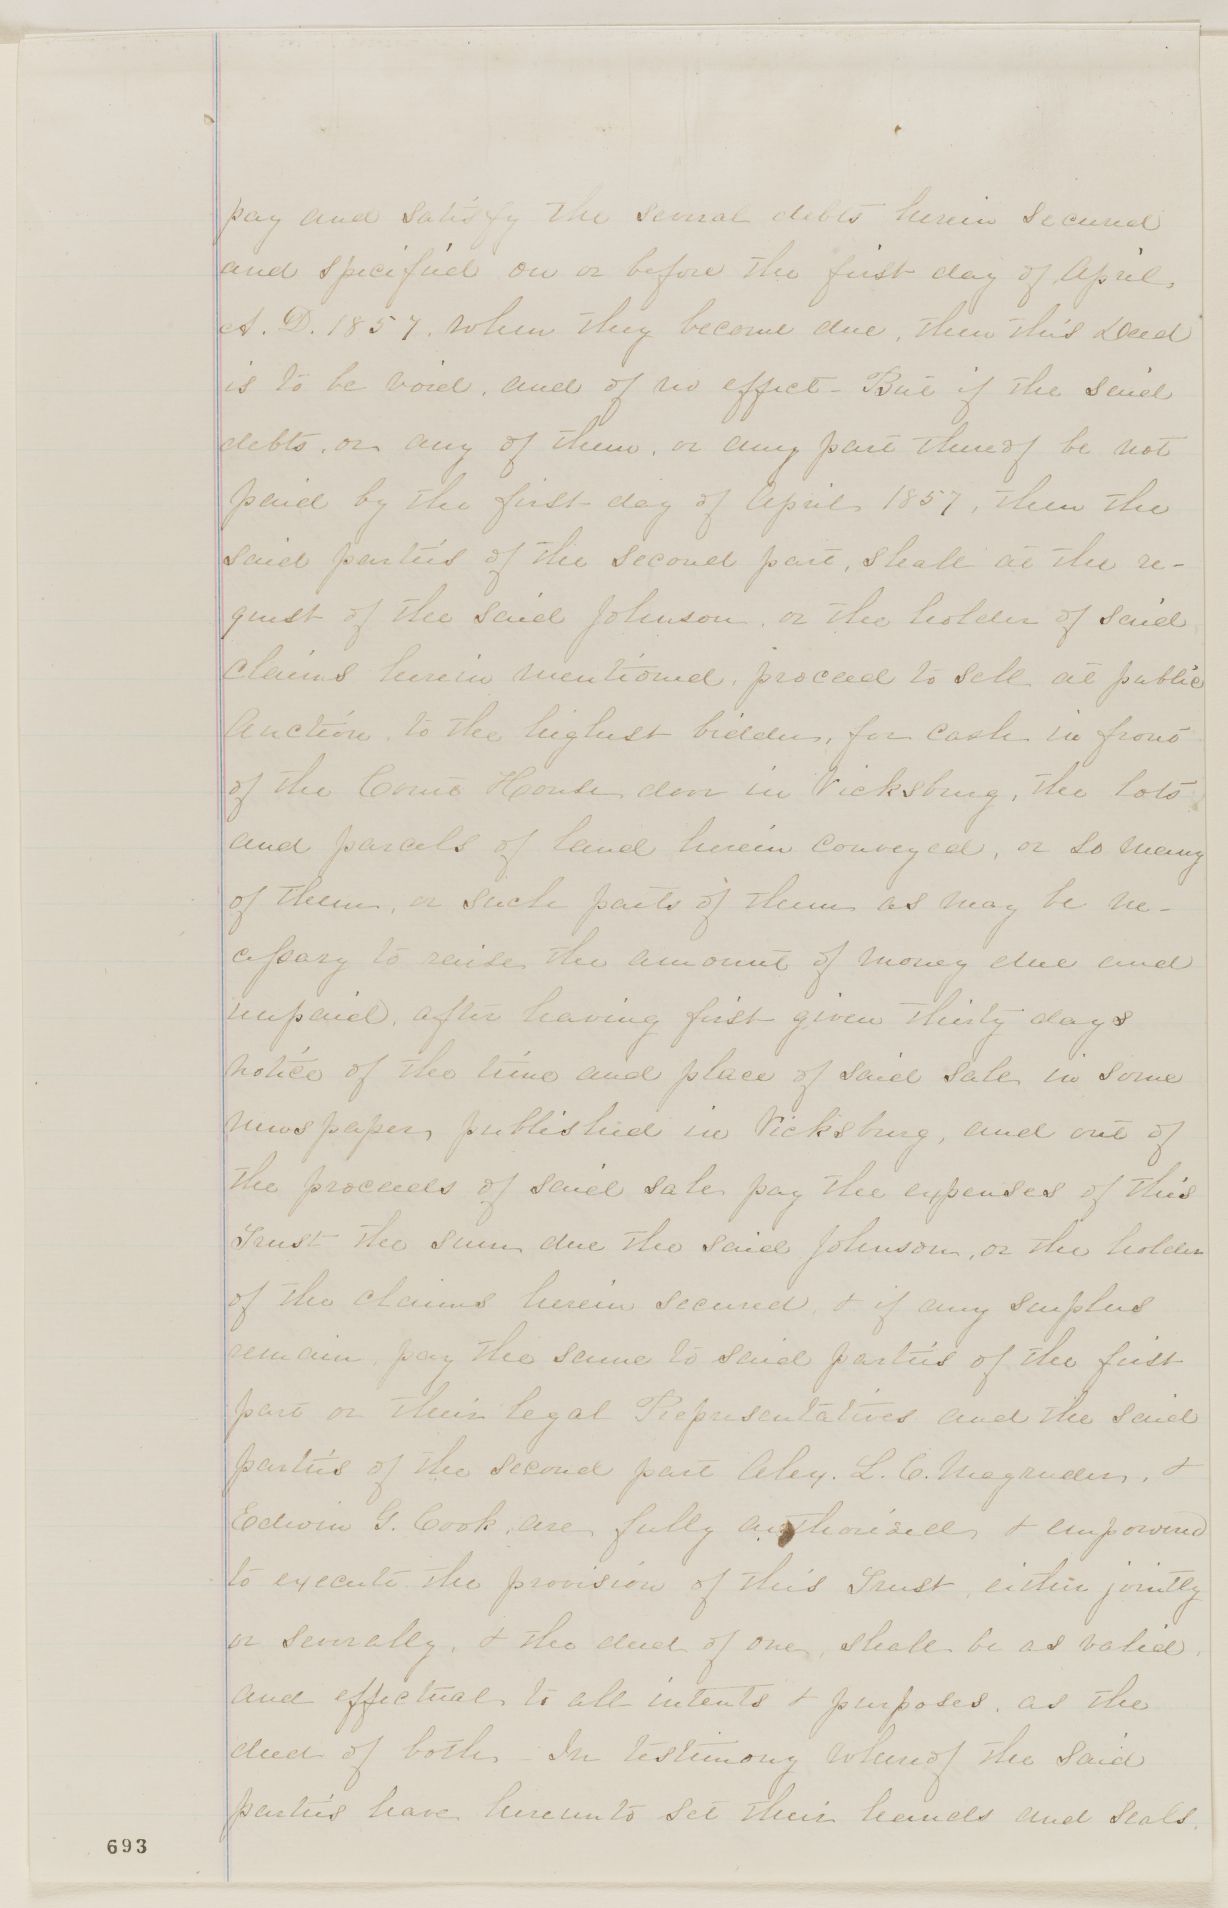 pay and satisfy the several debts herein secured
and specified on or before the first day of April,
A. D. 1857, when they become due, then this Deed
is to be void, and of no effect - But if the said
debts, or any of them, or any part thereof be not
paid by the first day of April 1857, then the
said parties of the second part, shall at the re-
quest of the said Johnson, or the holder of said
claims herein mentioned, proceed to sell at public
Auction, to the highest bidder, for cash in front
of the Court House door in Vicksburg, the lots
and parcels of land herein conveyed, or so many
of them, or such parts of them as may be ne-
cessary to raise the amount of money due and
unpaid, after having first given thirty days
notice of the time and place of said sale in some
newspaper, published in Vicksburg, and out of
the proceeds of said sale pay the expenses of this
Trust the sum due the said Johnson, or the holder
of the claims herein secured, & if any surplus
remain, pay the same to said parties of the first
part or their legal Representatives and the said
parties of the second part Alex. L. C. Magruder, &
Edwin G. Cook, are fully authorised & empowered
to execute the provision of this Trust, either jointly
or severally, & the deed of one, shall be as valid,
and effectual to all intents & purposes, as the
deed of both - In testimony whereof the said
parties have hereunto set their hands and seals.
693